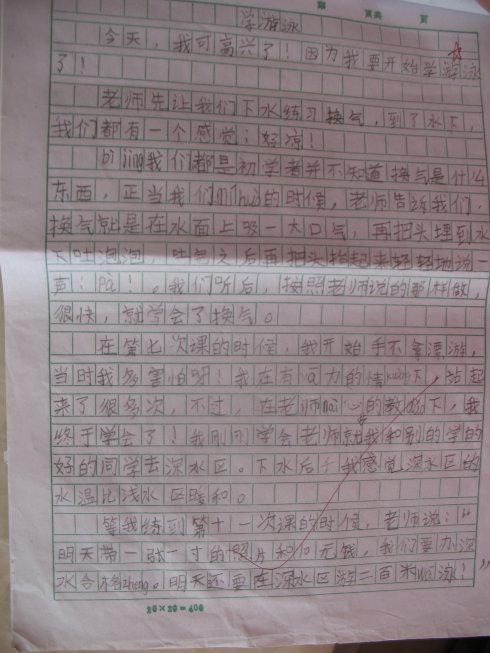 第 页共 页
学游泳
今天，我可高兴了！因为我要开始学游泳
了！
老师先让我们下水练习换气，到了水下，
我们都有一个感觉：好凉！
bì jìng我们都是初学者并不知道换气是什么
东西，正当我们的时候，老师告诉我们，
换气就是在水面上吸一大口气，再把头埋到水
下吐泡泡，吐完之后再把头抬起来轻轻地说一
声：pà！。我们听后，按照老师说的那样做，
很快，就学会了换气。
在第七次课的时候，我开始手不拿漂游，
当时我多害怕呀！我在有力的情kuàng下，站起
来了很多次，不过，在老师nài心的教下，我
终于学会了！我刚刚学会老师就我和别的学的
好的同学去深水区。下水后我感觉深水区的
水温比浅水区暖和。
等我练到第十一次课的时候，老师说：“
明天带一张一寸的照片和10元钱，我们要办深
水合格zhèng。明天还要在深水区游二百米wa泳！”
20×20=400